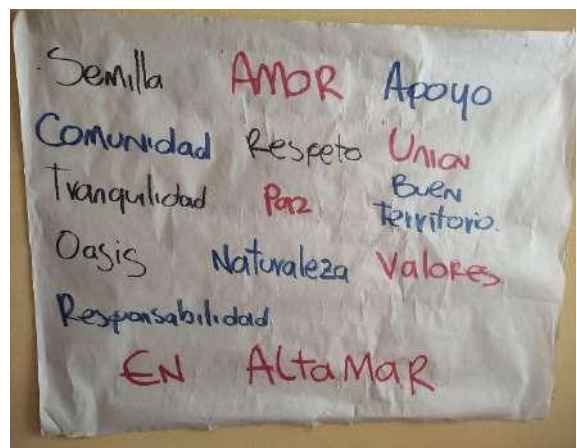 Semilla AMOR Apoyo
Comunidad Respeto Union
Tranquilidad Paz Buen Territorio.
Oasis Naturaleza Valores
Responsabilidad
EN AltaMaR